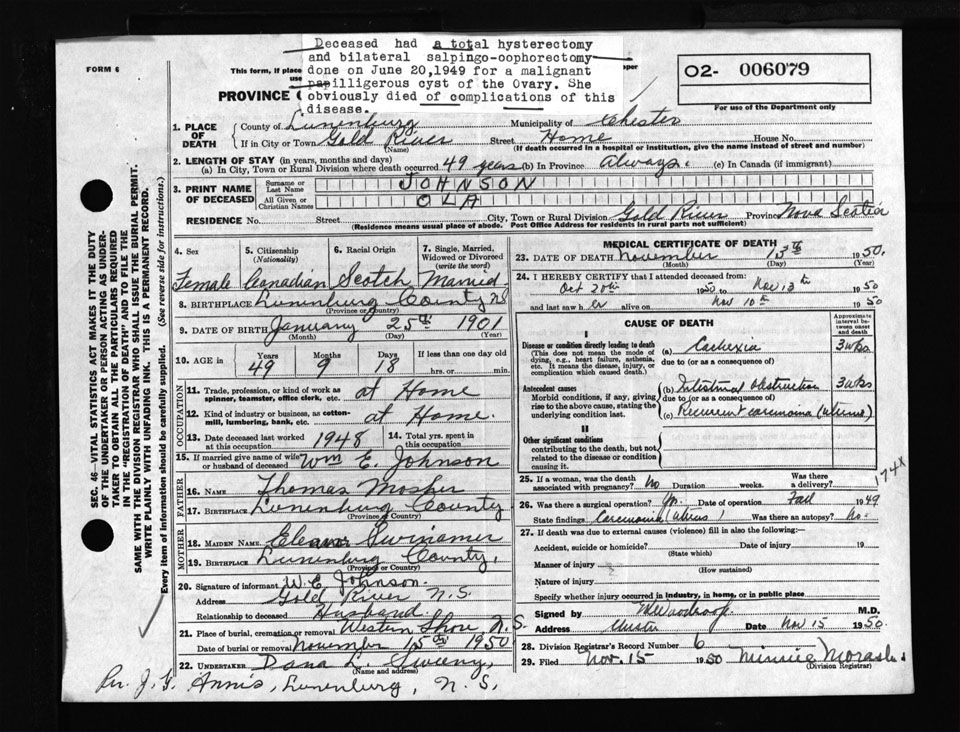 Deceased had a total hysterectomy
and bilateral salpingo-oophorectomy
done on June 20,1949 for a malignant
papilligerous cyst of the Ovary. She
obviously died of complications of this
disease.
FORM 6
This form, if place
PROVINCE
02- 006079
For use of the Department only
1. PLACE OF DEATH County of Lunenburg Municipality of Chester
If in City or Town Gold River Street Home House No.
(Name) (If death occurred in a hospital or institution, give the name instead of street and number)
2. LENGTH OF STAY (in years, months and days)
(a) In City, Town or Rural Division where death occurred 49 years (b) In Province Always. (c) In Canada (if immigrant)
3. PRINT NAME OF DECEASED Surname or Last Name JOHNSON
All Given or Christian Names OLA
RESIDENCE No. Street City, Town or Rural Division Gold River Province Nova Scotia
(Residence means usual place of abode. Post Office Address for residents in rural parts not sufficient)
4. Sex 5. Citizenship (Nationality) 6. Racial Origin 7. Single, Married, Widowed or Divorced (write the word)
Female Canadian Scotch Married
8. BIRTHPLACE Lunenburg County NS
(Province or Country)
9. DATE OF BIRTH January 25th 1901
(Month) (Day) (Year)
10. AGE IN Years Months Days If less than one day old
49 9 18 hrs. or min.
OCCUPATION
11. Trade, profession, or kind of work as spinner, teamster, office clerk, etc. at Home
12. Kind of industry or business, as cotton-mill, lumbering, bank, etc. at Home.
13. Date deceased last worked at this occupation 1948 14. Total yrs. spent in this occupation
15. If married give name of wife or husband of deceased Wm E. Johnson
FATHER
16. NAME Thomas Mosher
17. BIRTHPLACE Lunenburg County
(Province or Country)
MOTHER
18. MAIDEN NAME Swinamer
19. BIRTHPLACE Lunenburg County,
(Province or Country)
20. Signature of informant W. E. Johnson.
Address Gold River N.S.
Relationship to deceased Husband.
21. Place of burial, cremation or removal Western Shore N.S.
Date of burial or removal November 15th 1950
22. UNDERTAKER Dana L. Sweeny,
(Name and address)
Per. J. G. Annis, Lunenburg, N. S.
MEDICAL CERTIFICATE OF DEATH
23. DATE OF DEATH November 13th 1950.
(Month) (Day) (Year)
24. I HEREBY CERTIFY that I attended deceased from
Oct 20th 1950 to Nov 13th 1950
and last saw her Nov 10th 1950
CAUSE OF DEATH
Approximate interval between onset and death
I
Disease or condition directly leading to death (a) Cachexia 3 wks
(This does not mean the mode of dying, e.g., heart failure, asthenia, etc. It means the disease, injury, or complication which caused death.)
due to (or as a consequence of)
Antecedent causes (b) Intestinal Obstruction 3 wks
Morbid conditions, if any, giving rise to the above cause, stating the underlying condition last.
due to (or as a consequence of)
(c) Recurrent carcinoma (uterus)
II
Other significant conditions contributing to the death, but not related to the disease or condition causing it.
174x
25. If a woman, was the death associated with pregnancy? No Duration weeks. Was there a delivery?
26. Was there a surgical operation? Yes. Date of operation Fall 1949
State findings Carcinoma (uterus) Was there an autopsy? No.
27. If death was due to external causes (violence) fill in also the following:—
Accident, suicide or homicide? Date of injury 19
(State which)
Manner of injury
(How sustained)
Nature of injury
Specify whether injury occurred in industry, in home, or in public place
Signed by M.D.
Address Chester Date Nov 15 1950.
28. Division Registrar's Record Number 6
29. Filed Nov. 15 1950 Minnie
(Division Registrar)
SEC. 46—VITAL STATISTICS ACT MAKES IT THE DUTY
OF THE UNDERTAKER OR PERSON ACTING AS UNDER-
TAKER TO OBTAIN ALL THE PARTICULARS REQUIRED
IN THE "REGISTRATION OF DEATH" AND TO FILE THE
SAME WITH THE DIVISION REGISTRAR WHO SHALL ISSUE THE BURIAL PERMIT.
WRITE PLAINLY WITH UNFADING INK. THIS IS A PERMANENT RECORD.
Every item of information should be carefully supplied. (See reverse side for instructions.)